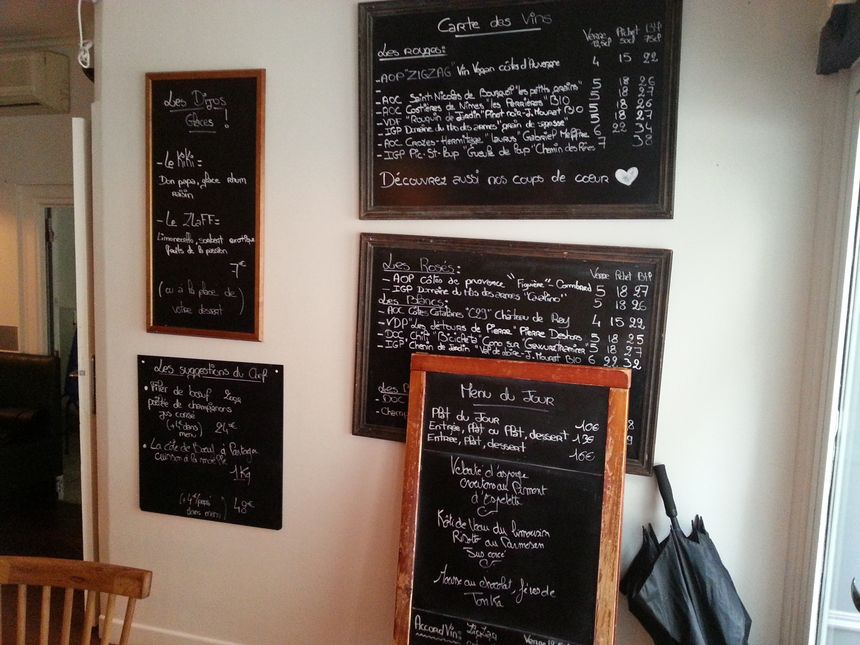 Carte des Vins
Verre Pichet Btl
12,5cl 50cl 75cl
Les rouges:
-AOP "ZIGZAG" Vin Vegan côtes d'Auvergne 4 15 22
-AOC Saint Nicolas de Bourgueil "les petits grains" 5 18 26
-AOC Costières de Nîmes "les Perrières" BIO 5 18 27
-VDF "Rouquin de Jardin" Pinot noir-J. Mourat BIO 5 18 26
-IGP Domaine du Mas des armes 5 18 27
-AOC Crozes-Hermitage "Laurus" Gabriel Meffre 6 22 34
-IGP Pic-St-Loup "Gueule de Loup" Chemin des Rêves 7 38
Découvrez aussi nos coups de coeur
Les Digos
Glacés !
-Le KiKi=
Don papa, glace rhum
raisin
-Le ZLaFF=
Limoncello, sorbet exotique
fruits de la passion
7€
(ou à la place de)
votre dessert
Les Rosés: Verre Pichet Btl
-AOP côtes de provence "Figuière"- Combard 5 18 27
-IGP Domaine du Mas des armes 5 18 26
Les Blancs:
-AOC Côtes Catalanes "C29" Château de Rey 4 15 22
-VDP "Les détours de Pierre" Pierre Deshors 5 18 25
-DOC Chili "Bicicleta" Cono sur Gewurztraminer 5 18 27
-IGP Chenin de Jardin "Val de Loire-J. Mourat BIO 6 22 32
-DOC
Les suggestions du Chef
• Filet de boeuf 200g
poêlée de champignons
jus corsé
(+14€ dans
menu) 24€
• La Côte de Boeuf à Partager
cuisson à la moelle
1Kg
(+4€/pers
dans menu) 48€
Menu du Jour
Plat du Jour 10€
Entrée, Plat ou Plat, dessert 13€
Entrée, Plat, dessert 16€
Velouté d'asperge
croutons au Piment
d'Espelette
Rôti de Veau du limousin
Risotto au Parmesan
Jus corsé
Mousse au chocolat, fèves de
Tonka
Accord Vin: Zigzag